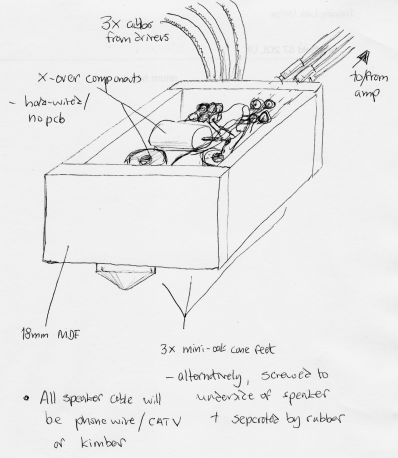 3x cables
from drivers
X-over components
- hard-wired/
no pcb
to/from
amp
18mm MDF
3x mini-oak cone feet
- alternatively, screwed to
underside of speaker
+ seperated by rubber
• All speaker cable will
be phone wire/CATV
or kimber